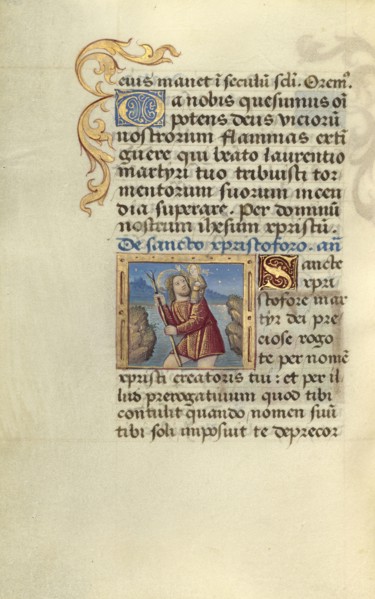 eius manet ī seculū sc̄li. Orem⁹.
Da nobis quesumus oī
potens deus viciorū
nostrorum flammas extī
guere qui beato laurentio
martyri tuo tribuisti tor
mentorum suorum incen
dia superare. Per dominū
nostrum ihesum xpristū.
De sancto xpristoforo. an̄
Sancte
xpri
stofore mar
tyr dei pre
ciose rogo
te per nomē
xpristi creatoris tui: et per il
lud prerogatiuum quod tibi
contulit quando nomen suū
tibi soli imposuit te deprecor